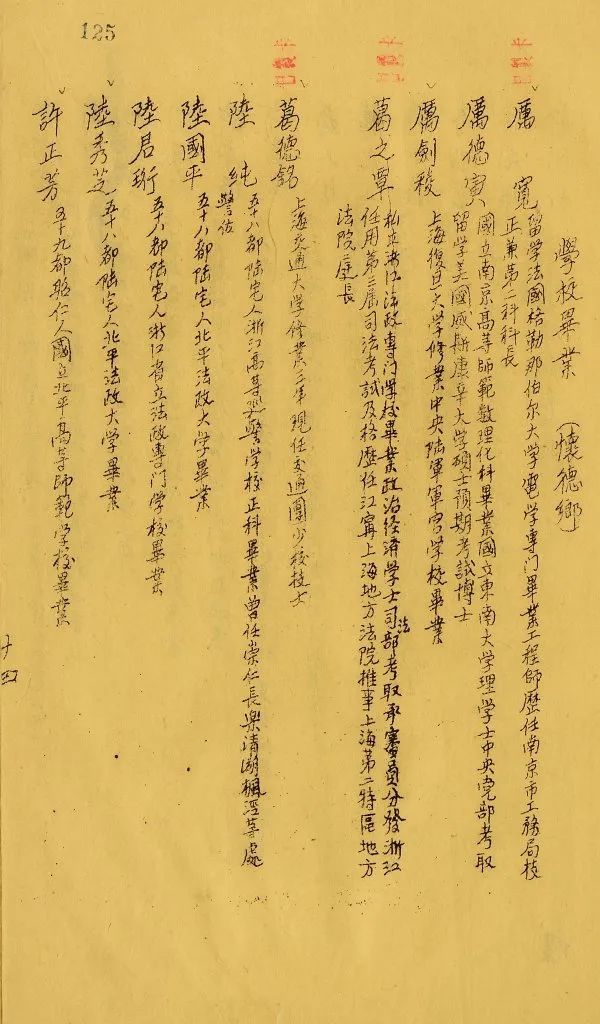 125
學校畢業 (懷德鄉)
厲寬 留學法國格勒那伯尔大学電学專门畢業工程師歷任南京市工務局技
正兼第二科科長
厲德寅 國立南京髙等師範数理化科畢業國立東南大学理学士中央党部考取
留学美國威斯康辛大学碩士預期考試博士
厲劍稜 上海復旦大学修業中央陆軍軍官学校畢業
葛之覃 私立浙江法政專门学校畢業政治经濟学士司法部考取承審員分發浙江
任用第三届司法考試及格歷任江寧上海地方法院推事上海第二特區地方
法院庭長
葛德銘 上海交通大学修業三年現任交通團少校技士
陸純 五十八都陆宅人浙江髙等警学校正科畢業曽任崇仁長樂清湖楓涇等處
警佐
陸國平 五十八都陆宅人北平法政大学畢業
陸君珩 五十八都陆宅人浙江省立法政專门学校畢業
陸秀芝 五十八都陆宅人北平法政大学畢業
許正芳 五十九都昭仁人國立北平髙等師範学校畢業
十四